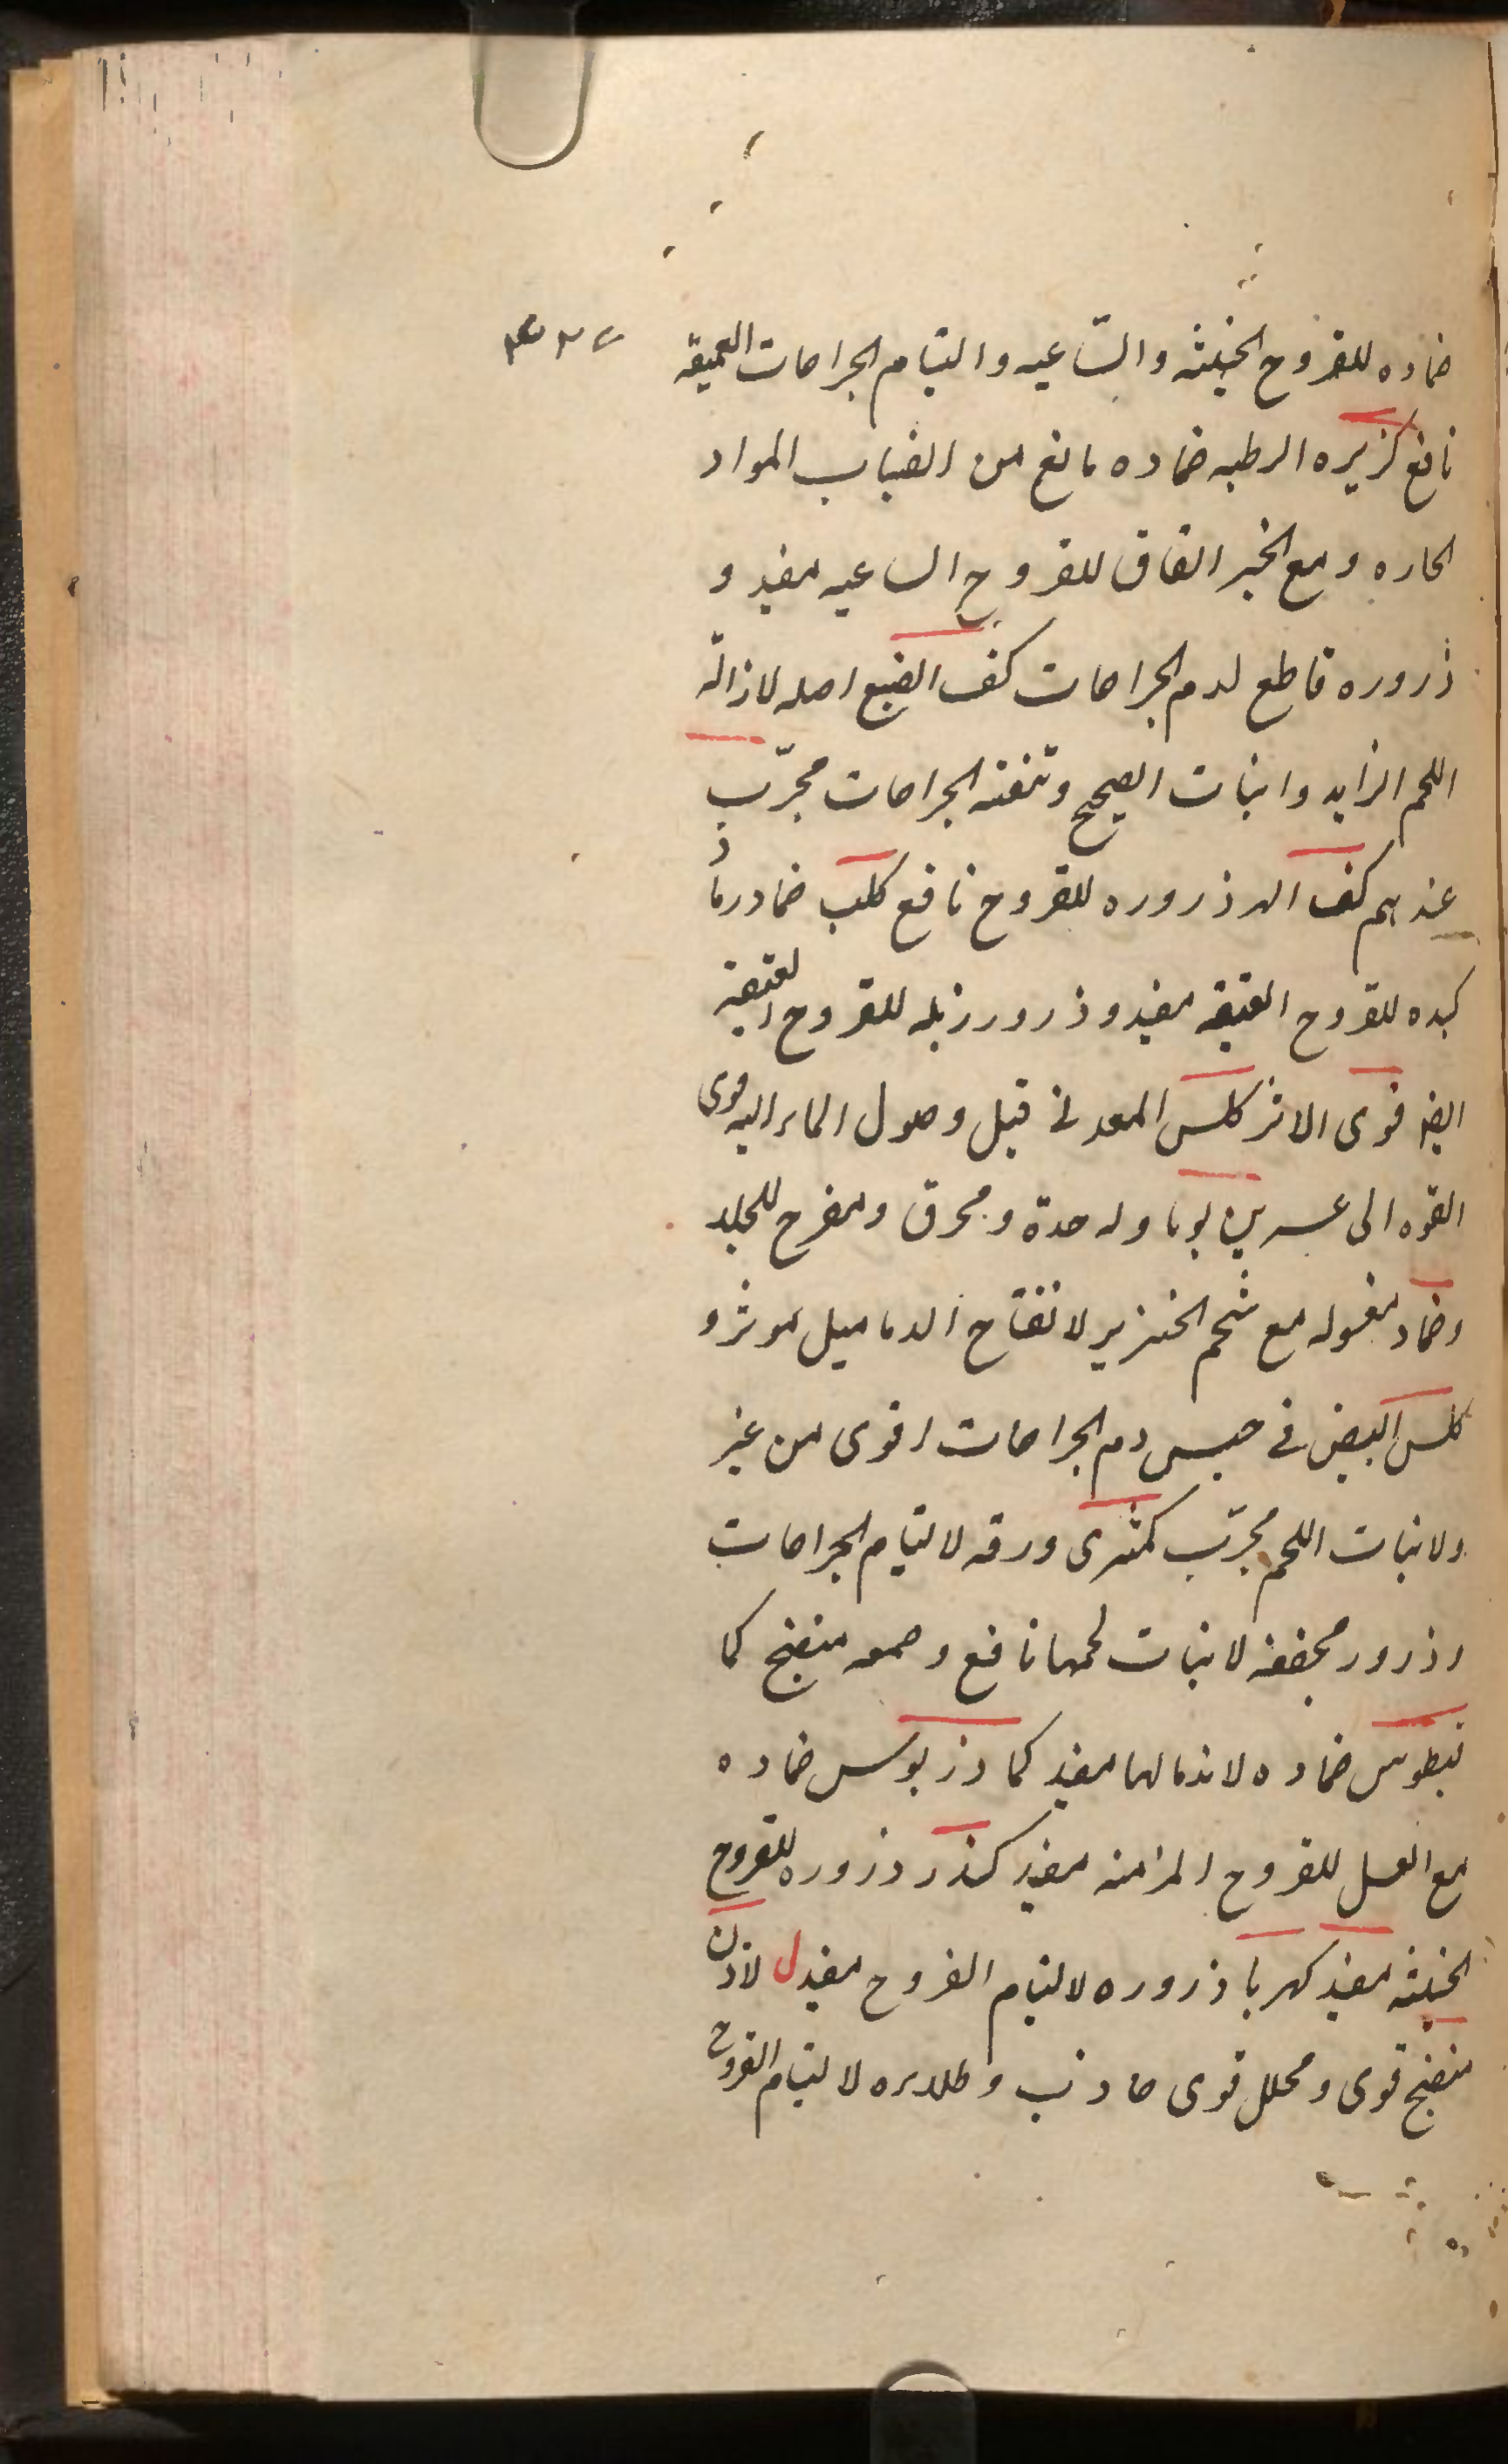 ضماده للقروح الخبیثه والساعیه والتیام الجراحات العمیقه
نافع کزبره الرطبه ضماده مانع من انصباب المواد
الحاره ومع الخبر القاق للقروح الساعیه مفید و
ذروره قاطع لدم الجراحات کف الضبع اصله لازالة
اللحم الزاید وانبات الصحیح وتنقیه الجراحات مجرّب
عندهم کف الهر ذروره للقروح نافع کلب ضماد رماد
کبده للقروح العتیقه مفید وذرور زبله للقروح العتیقه
ایضا قوی الاثر کلس المعدنی قبل وصول الماء الیه قوی
القوه الی عسرین یوما وله حدة ومحرق ومقرح للجلد
وضماد مغسوله مع شحم الخنزیر لانفتاح الدمامیل موثر و
کلس البیض فی حبس دم الجراحات اقوی من غیر
ولانبات اللحم مجرّب کمثری ورقه لالتیام الجراحات
وذرور مجففه لانبات لحمها نافع وصمغه منضج کما
نیطوس ضماده لاندمالها مفید کمادزیوس ضماده
مع العسل للقروح المزمنه مفید کندر ذروره للقروح
الخبیثه مفید کهربا ذروره لالتیام القروح مفید ل لاذن
منضج قوی ومحلل قوی جاذب وطلاء لالتیام القروح